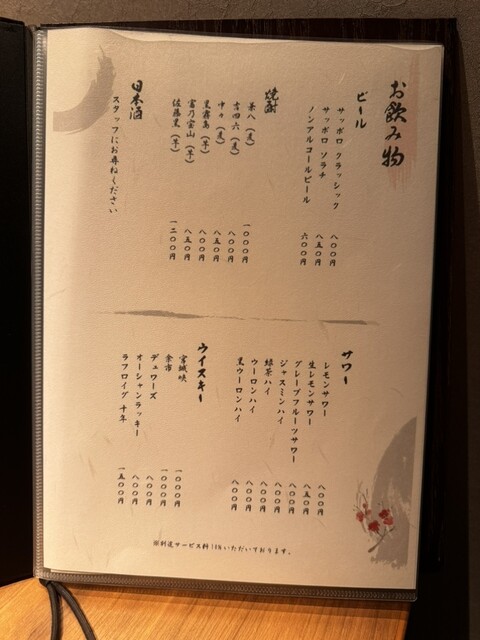 お飲み物
ビール
サッポロ クラッシック 八〇〇円
サッポロ ソラチ 八五〇円
ノンアルコールビール 六〇〇円
焼酎
兼八(麦) 一〇〇〇円
吉四六(麦) 八〇〇円
中々(麦) 八五〇円
黒霧島(芋) 八〇〇円
富乃宝山(芋) 八五〇円
佐藤黒(芋) 一二〇〇円
日本酒
スタッフにお尋ねください
サワー
レモンサワー 八〇〇円
生レモンサワー 八五〇円
グレープフルーツサワー 八〇〇円
ジャスミンハイ 八〇〇円
緑茶ハイ 八〇〇円
ウーロンハイ 八〇〇円
黒ウーロンハイ 八〇〇円
ウイスキー
宮城峡 一〇〇〇円
余市 一〇〇〇円
デュワーズ 八〇〇円
オーシャンラッキー 八〇〇円
ラフロイグ 十年 一五〇〇円
※別途サービス料10%いただいております。